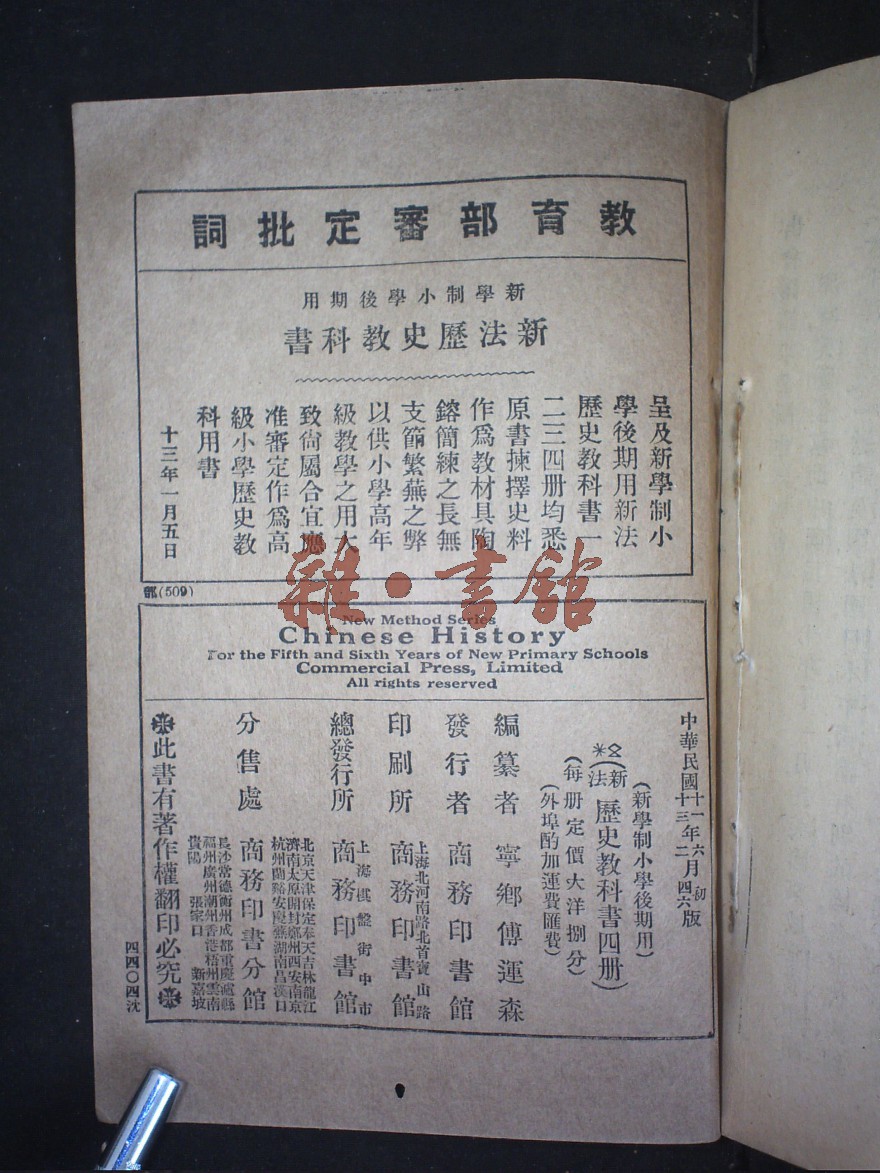 教育部審定批詞
新學制小學後期用
新法歷史教科書
呈及新學制小
學後期用新法
歷史教科書一
二三四册均悉
原書揀擇史料
作爲教材具陶
鎔簡練之長無
支節繁蕪之弊
以供小學高年
級教學之用大
致尙屬合宜應
准審定作爲高
級小學歷史教
科用書
十三年一月五日
部(509)
雜·書館
New Method Series
Chinese History
For the Fifth and Sixth Years of New Primary Schools
Commercial Press, Limited
All rights reserved
中華民國十一年六月初版
十三年二月四六版
(新學制小學後期用)
(新法歷史教科書四册)
(每册定價大洋捌分)
(外埠酌加運費匯費)
編纂者 寧鄉傅運森
發行者 商務印書館
印刷所 上海北河南路北首寶山路 商務印書館
總發行所 上海棋盤街中市 商務印書館
分售處 商務印書分館
北京天津保定奉天吉林龍江
濟南太原開封鄭州西安南京
杭州蘭谿安慶蕪湖南昌漢口
長沙常德衡州成都重慶瀘縣
福州廣州潮州香港梧州雲南
貴陽 張家口 新嘉坡
此書有著作權翻印必究
四四〇四沈